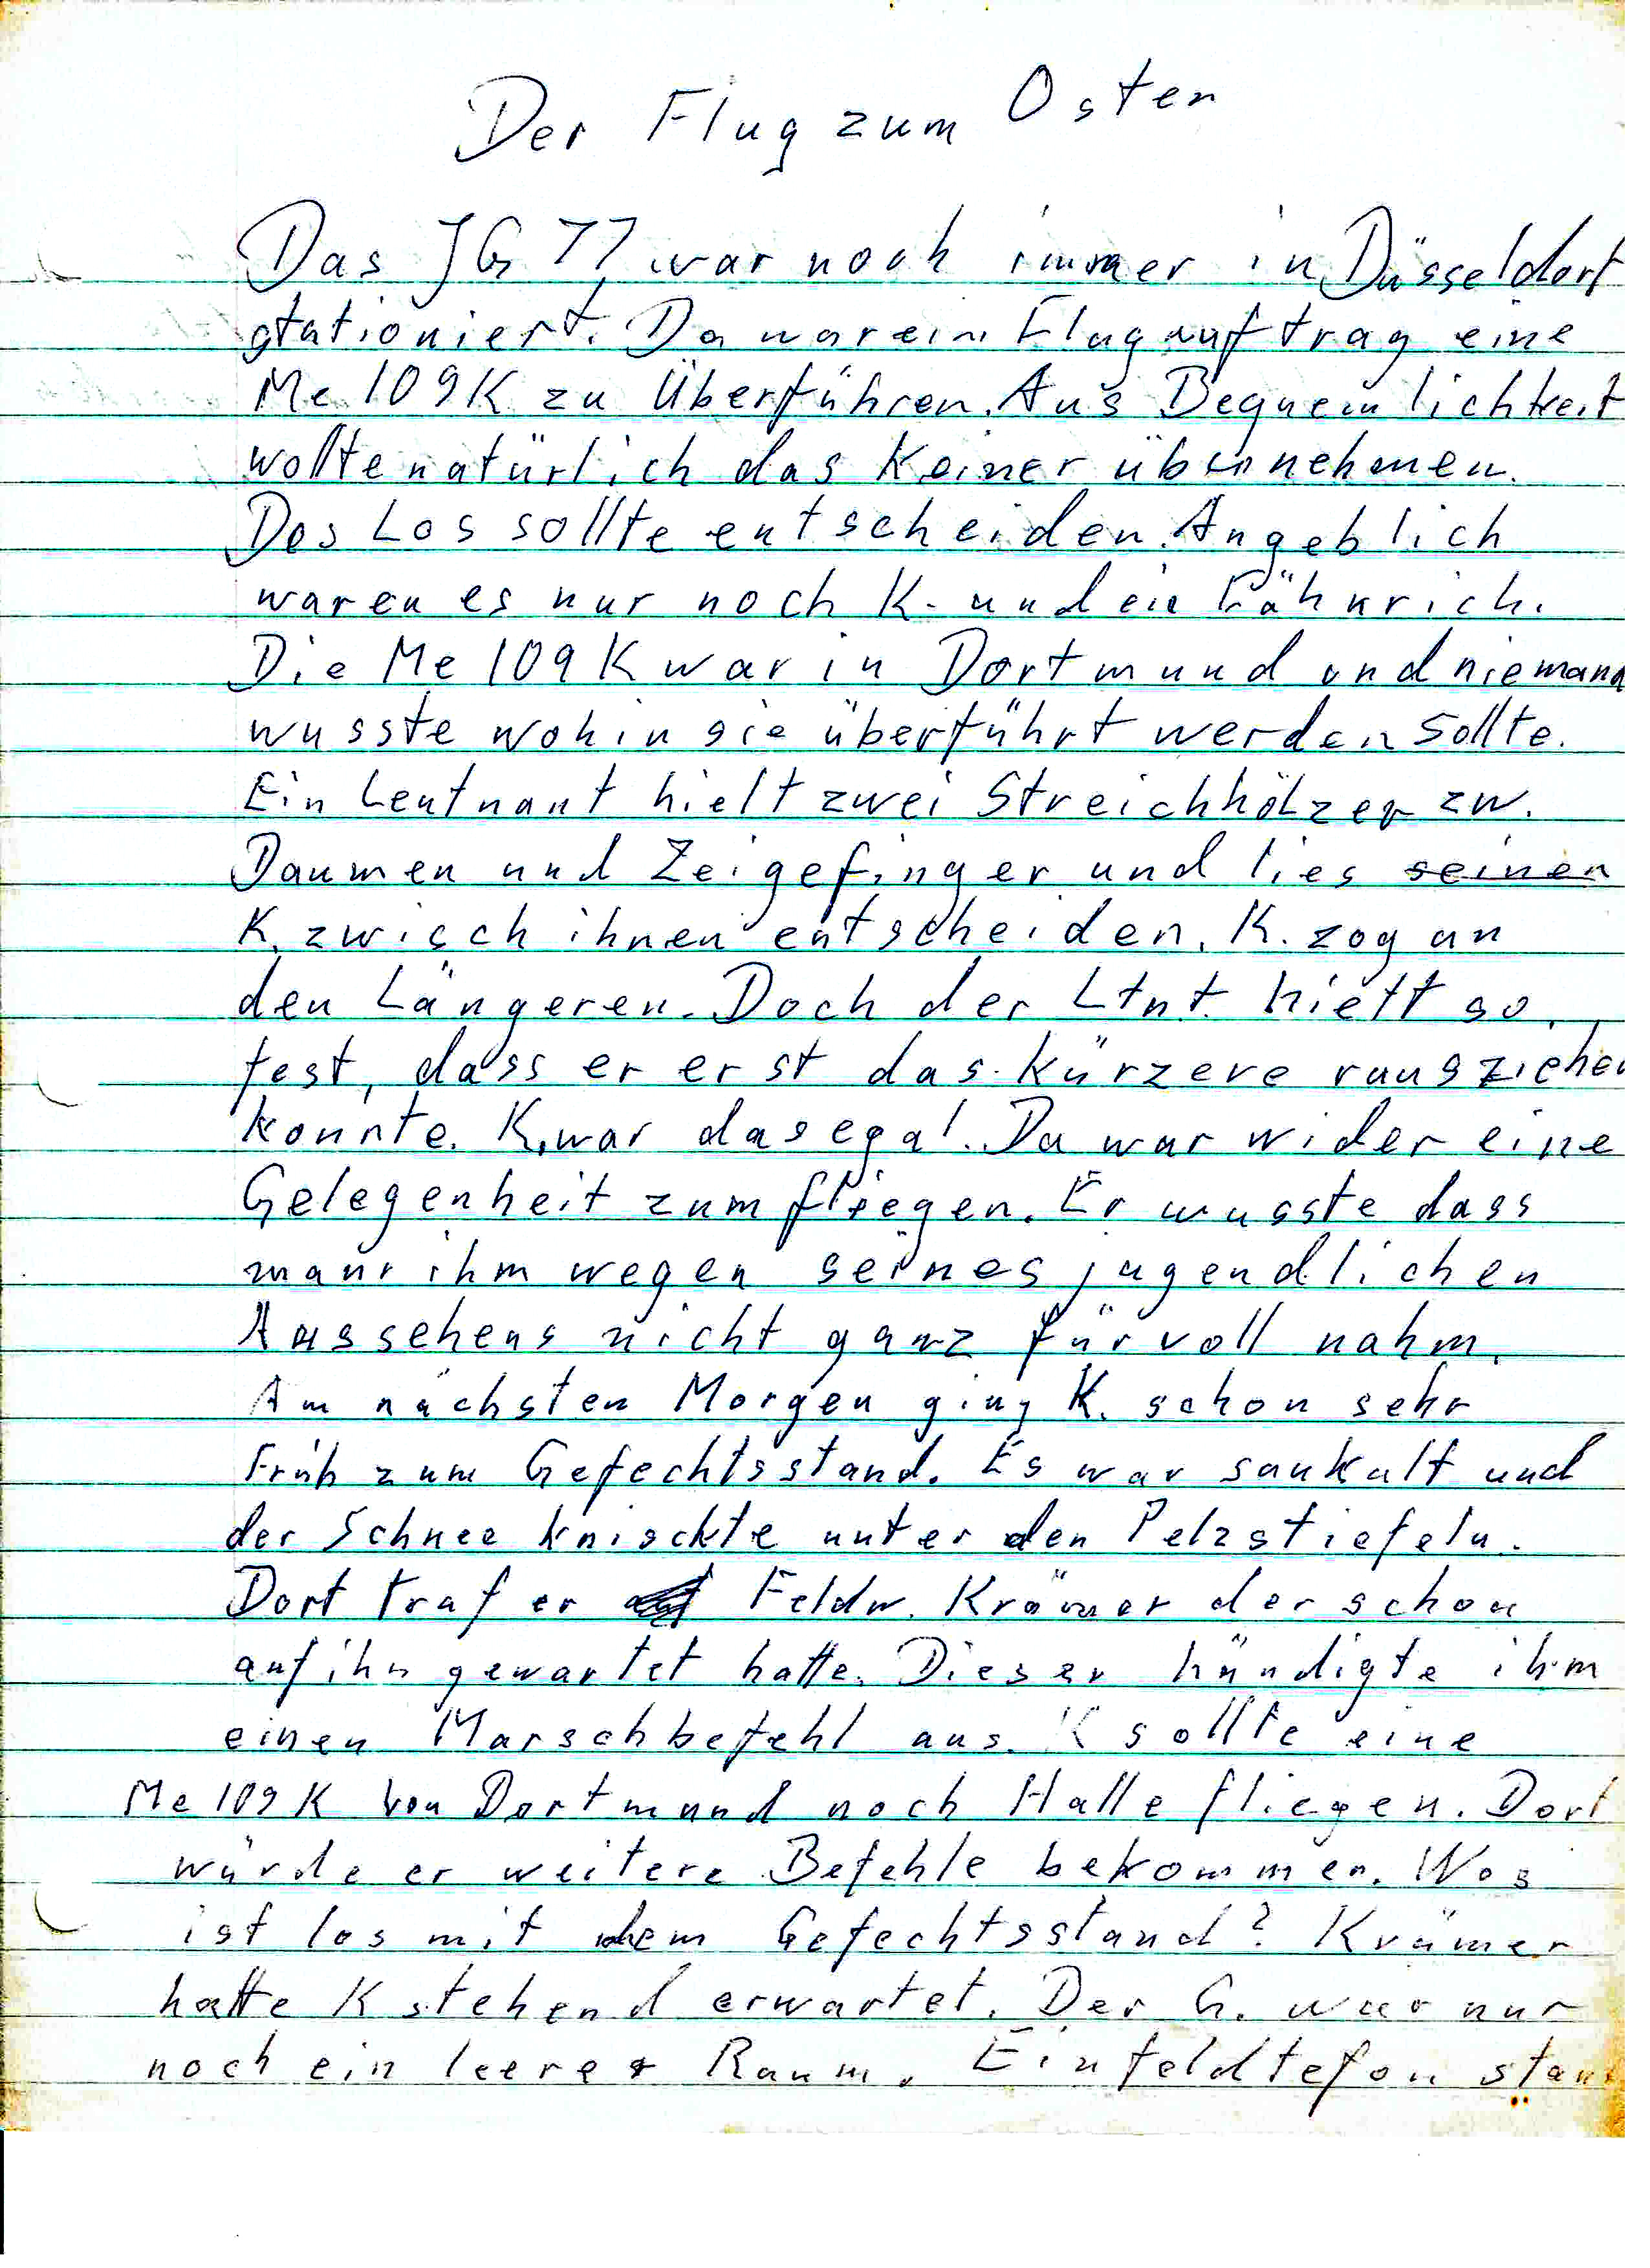 Der Flug zum Osten
Das JG 77 war noch immer in Düsseldorf
stationiert. Da war ein Flugauftrag eine
Me 109K zu Überführen. Aus Bequemlichkeit
wollte natürlich das Keiner übernehmen.
Das Los sollte entscheiden. Angeblich
waren es nur noch K. und ein Fähnrich.
Die Me 109K war in Dortmund und niemand
wusste wohin sie überführt werden sollte.
Ein Leutnant hielt zwei Streichhölzer zw.
Daumen und Zeigefinger und lies seinen
K. zwisch ihnen entscheiden. K. zog an
den Längeren. Doch der Ltnt. hielt so
fest, dass er erst das Kürzere rausziehen
konnte. K. war das egal. Da war wider eine
Gelegenheit zum fliegen. Er wusste dass
man ihm wegen seines jugendlichen
Aussehens nicht ganz für voll nahm.
Am nächsten Morgen ging K. schon sehr
Früh zum Gefechtsstand. Es war saukalt und
der Schnee knischte unter den Pelzstiefeln.
Dort traf er Feldw. Krämer der schon
auf ihn gewartet hatte. Dieser händigte ihm
einen Marschbefehl aus. K sollte eine
Me 109K von Dortmund nach Halle fliegen. Dort
würde er weitere Befehle bekommen. Was
ist los mit dem Gefechtsstand? Krämer
hatte K stehend erwartet. Der G. war nur
noch ein leerer Raum. Ein feldtefon stand